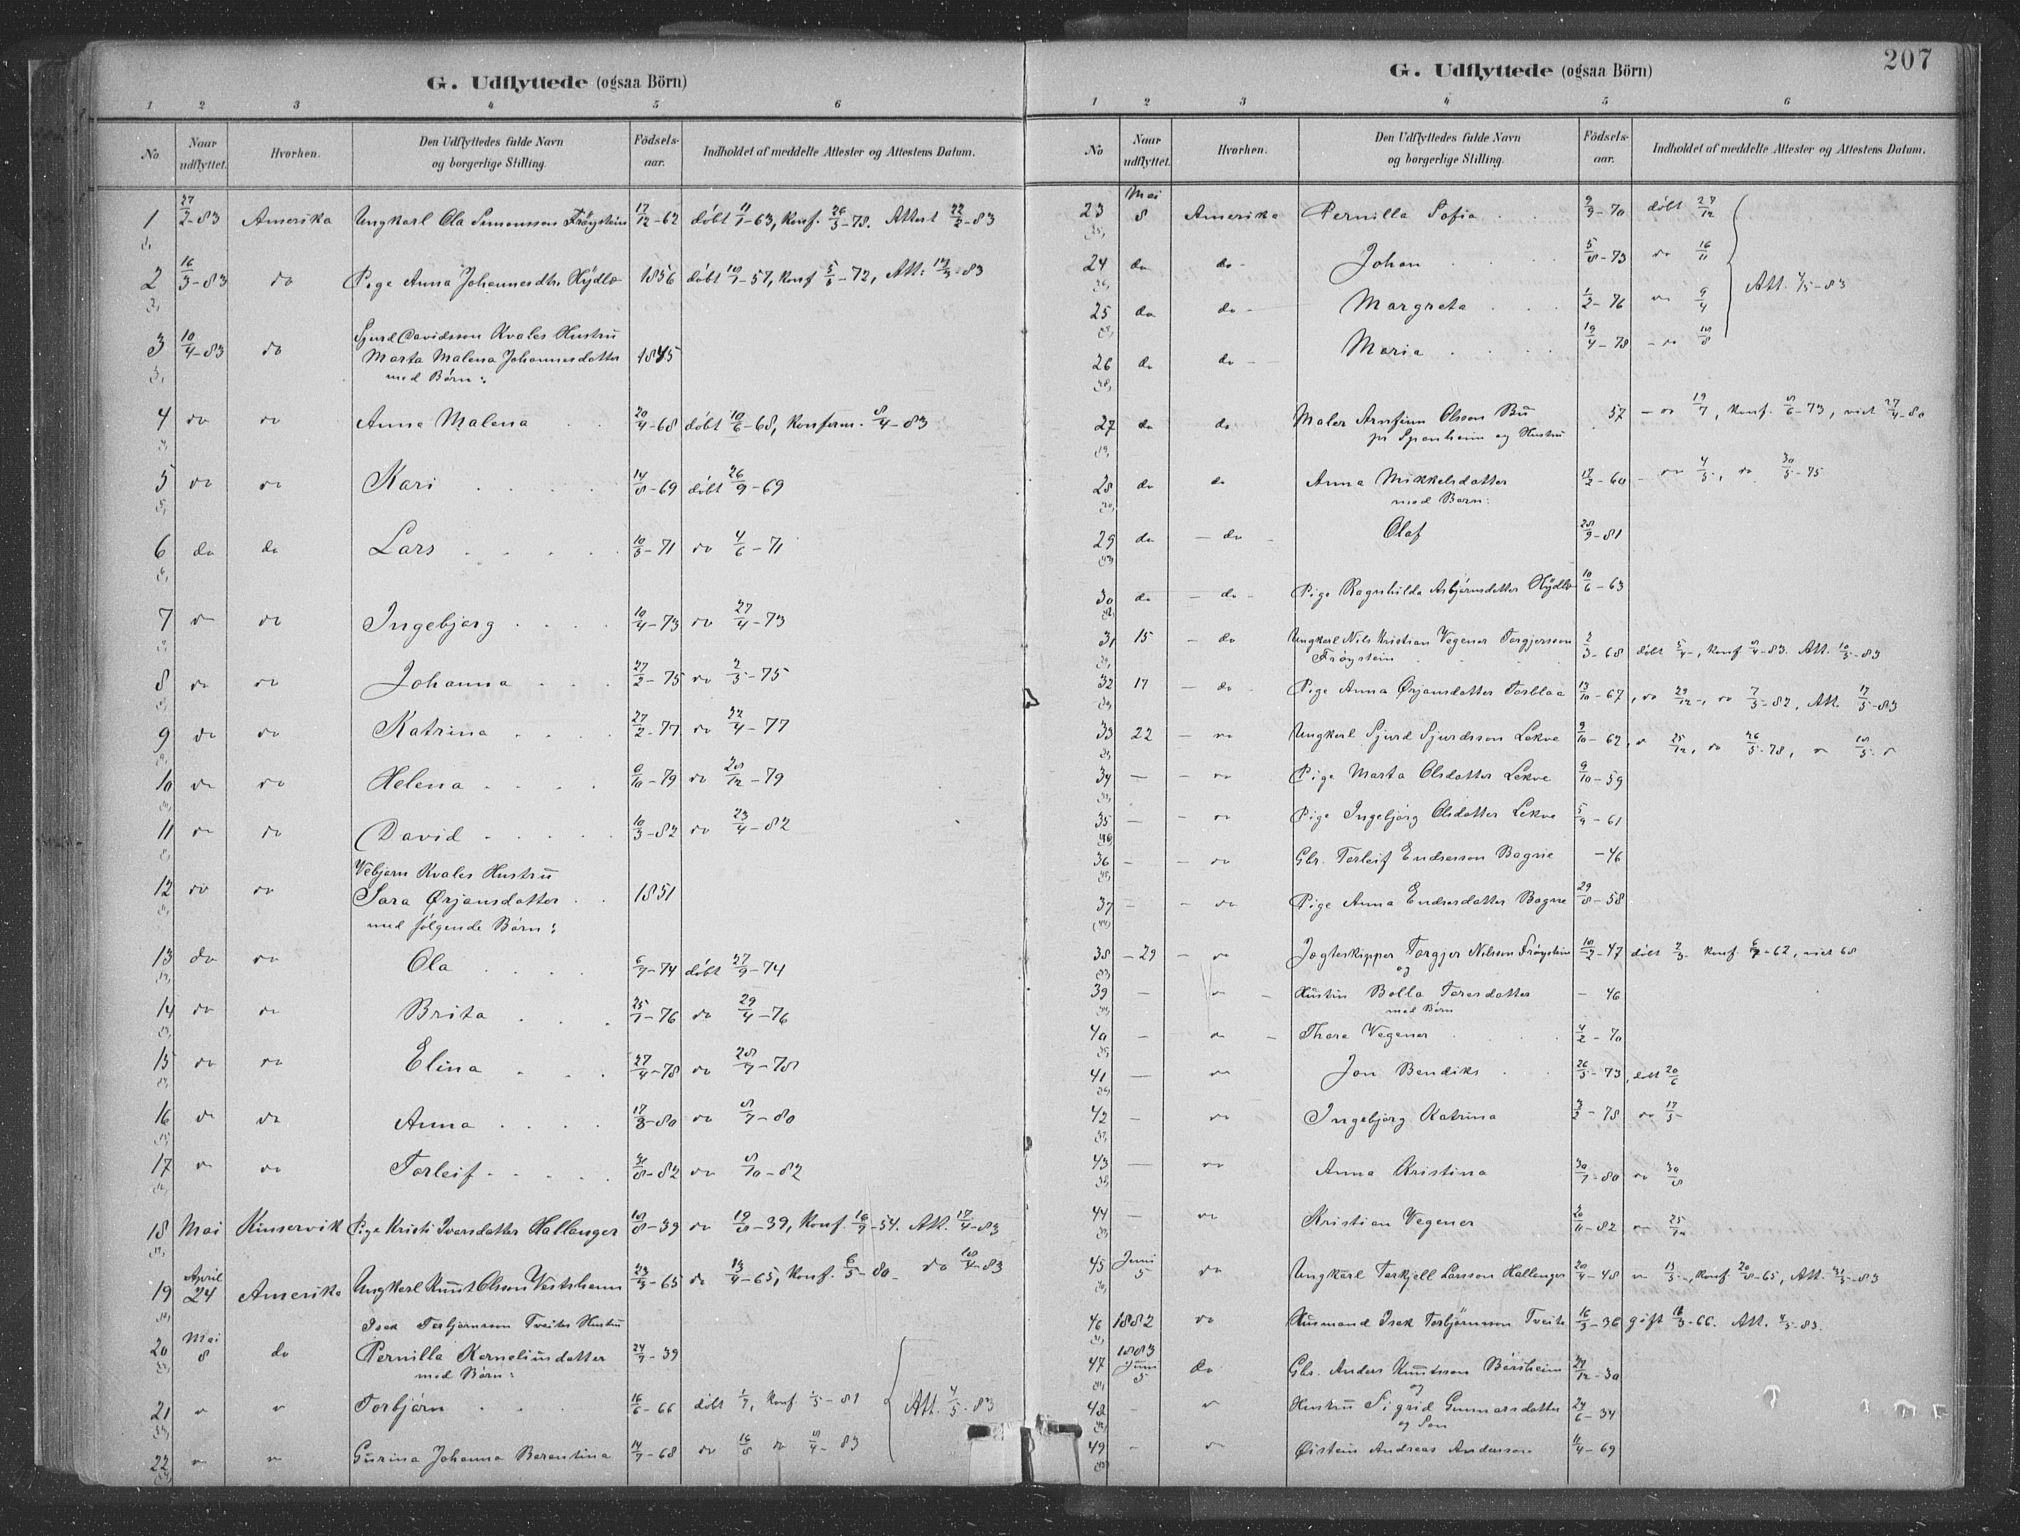 G. Udflyttede (ogsaa Börn)
1 2 3 4 5 6
No Naar udflyttet. Hvorhen. Den Udflyttedes fulde Navn og borgerlige Stilling. Födsels-aar. Indholdet af meddelte Attester og Attestens Datum.
1 27/2-83 Amerika Ungkarl Ola Simonsson Frøystein 17/12-62 døbt 11/1-63, Konf. 26/5-78. Attest 22/2-83
2 16/3-83 do Pige Anna Johannesdtr. Hydle 1856 døbt -57, Konf -72, Att: -83
3 10/4-83 do Sjurd Davidsson Kvales Hustru
Marta Malena Johannesdatter 1845
med Børn:
4 do do Anna Malena 20/4-68 døbt 10/6-68, Konferm. 8/4-83
5 do do Kari 14/8-69 døbt 26/9-69
6 do do Lars 10/5-71 do 4/6-71
7 do do Ingebjørg 10/4-73 do 27/4-73
8 do do Johanna 27/2-75 do 2/5-75
9 do do Katrina 27/2-77 do 22/4-77
10 do do Helena 8/10-79 do 28/12-79
11 do do David 10/3-82 do 23/4-82
12 do do Vebjørn Kvales Hustru
Sara Ørjansdatter 1851
med følgende Børn:
13 do do Ola 6/7-74 døbt 27/9-74
14 do do Brita 25/1-76 do 29/4-76
15 do do Elina 27/4-78 do 28/7-78
16 do do Anna 17/3-80 do 8/7-80
17 do do Torleif -82 do 8/10-82
18 Mai Kinservik Pige Kristi Ivarsdatter Hallanger 18/8-39 do 19/8-39, Konf. -54. Att. 17/4-83
19 April 24 Amerika Ungkarl Knut Olsson Vestrheim 23/3-65 do 13/4-65, Konf. 6/5-80 do 18/4-83
20 Mai 8 do Isak Torbjørnsson Tveites Hustru
Pernilla Korneliusdatter 24/7-39
med Børn:
21 Torbjørn 16/6-66 døbt 1/7, Konf. 1/5-81 Att. 4/5-83
22 Gurina Johanna Berentina 14/7-68 do 16/8 do 8/4-83
207
G. Udflyttede (ogsaa Börn)
1 2 3 4 5 6
No Naar udflyttet. Hvorhen. Den Udflyttedes fulde Navn og borgerlige Stilling. Födsels-aar. Indholdet af meddelte Attester og Attestens Datum.
23 Mai 8 Amerika Pernilla Sofia 9/9-70 døbt 27/12
24 do do Johan 5/8-73 do 16/11
25 do do Margreta 1/2-76 do 9/4 Att. 4/5-83
26 do do Maria 19/4-78 - do 10/8
27 do do Maler Arnfinn Olsson Bu 57 - do 19/7, Konf. 8/6-73, viet 27/4-80
pr Spanheim og Hustru
28 do do Anna Mikkelsdatter 17/2-60 - do 4/5, do 30/5-75
med Barn:
29 do - do - Olaf 28/9-81
30 do - do - Pige Ragnhilda Asbjørnsdatter Hydle 10/6-63
31 15 - do Ungkarl Nils Kristian Vegener Torgjersson
Frøystein 2/3-68 døbt 5/4, Konf 8/4-83. Att. 10/5-83
32 17 - do Pige Anna Ørjansdatter Torblaa 13/10-67, do 29/12, do 7/5-82, Att. 17/5-83
33 22 - do Ungkarl Sjurd Sjurdsson Lekve 9/10-62, do 25/12, do 26/5-78, do 18/5
34 - do Pige Marta Olsdatter Lekve 9/10-59
35 - - do Pige Ingebjørg Olsdatter Lekve 5/9-61
36 - - do Gbr. Torleif Endresson Bagne -46
37 - - do Pige Anna Endresdatter Bagne 29/8-58
38 - 29 - do Jagteskipper Torgjer Nilsson Frøystein 10/2-47 døbt 2/3 Konf. -62, viet 68
og
39 - Hustru Bolla Toresdatter - 46
med Børn
40 - do - Thora Vegener 4/2-70
41 - do Jon Bendiks 26/5-73, døbt 20/6
42 - do Ingebjørg Katrina 3/2-78 do 17/5
43 - do Anna Kristina 30/7-80 do 30/8
44 do Kristian Vegener 20/11-82 do 25/12
45 Juni 5 do Ungkarl Torkjell Larsson Hallanger 20/4-48 do 13/5, Konf 20/8-65, Att. -83
46 1882 do Husmand Isak Torbjørnsson Tveite 16/3-36 gift -66. Att. 4/5-83.
47 1883 Juni 5 do Gbr. Anders Knutsson Børsheim 27/12-30
og
48 - Hustru Sigrid Gunnarsdatter 24/6-34
og Søn
49 - Øistein Andreas Andersson 11/4-69